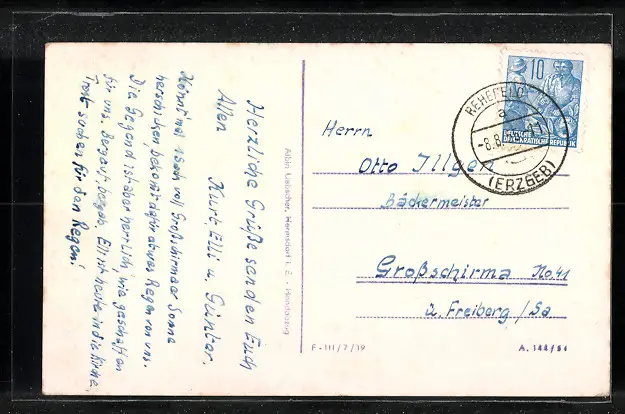 Herzliche Grüße senden Euch
Allen Kurt, Elli u. Günter.
Könnt mal 1 Sack voll Großschirmaer Sonne
herschicken, bekommt dafür etwas Regen von uns.
Die Gegend ist aber herrlich, wie geschaffen
für uns. Bergauf, bergab. Elli ist heute in die Kirche,
Trost suchen für den Regen!
Albin Ladscher, Hermsdorf i. E. - Handabzug
F-111/7/19
10
DEUTSCHE
DEMOKRATISCHE REPUBLIK
REHEFELD
a
-8.8.
(ERZGEB)
Herrn
Otto Illgen
Bäckermeister
Großschirma No. 41
ü. Freiberg /Sa.
A. 144/54